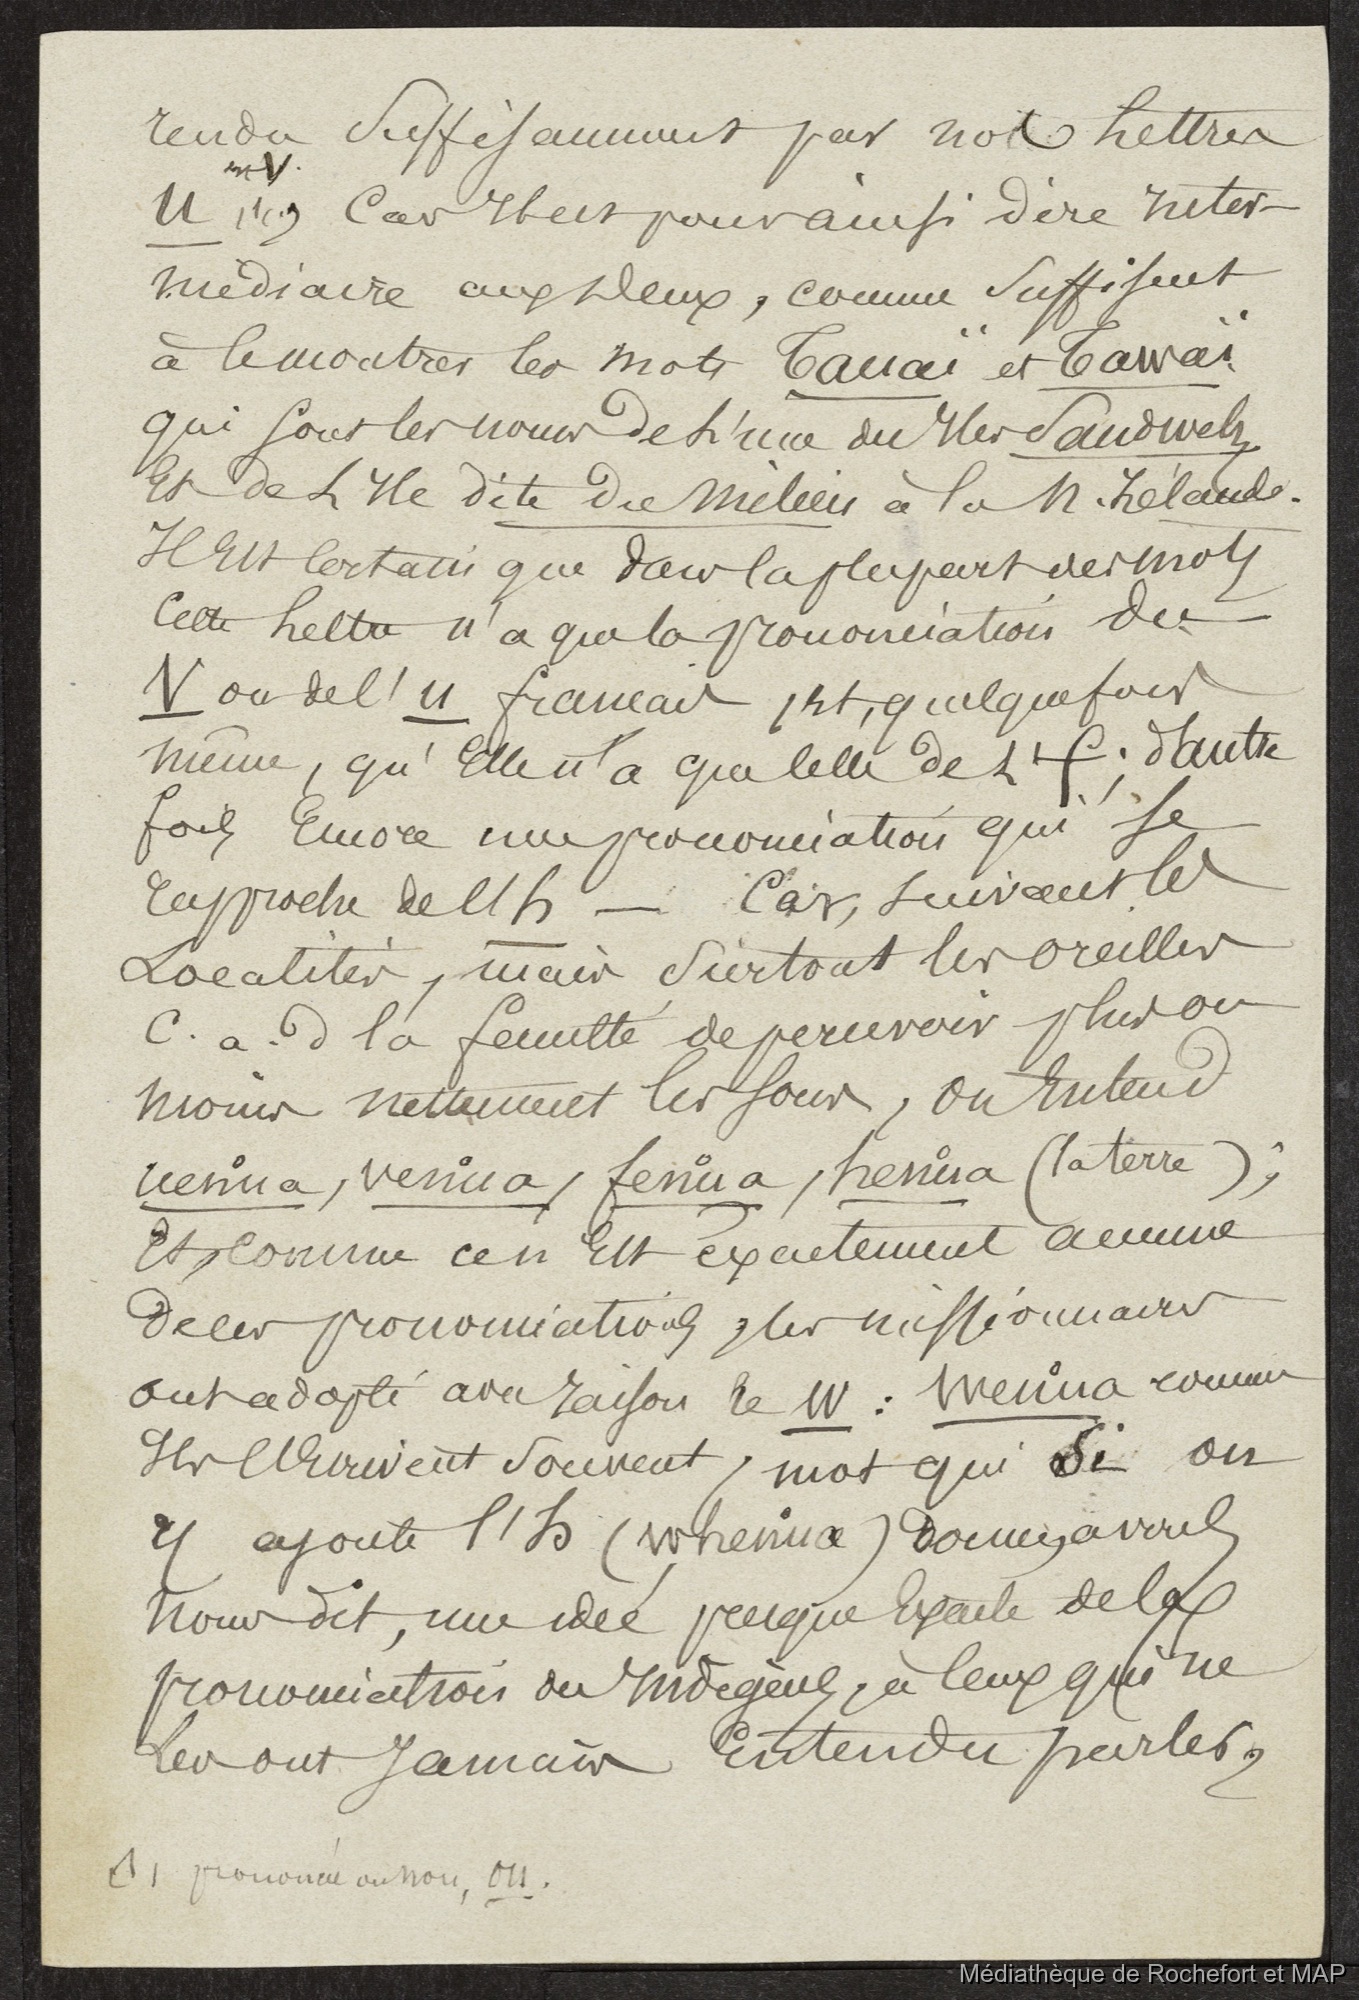 rendu suffisamment par nos lettres
ni V.
U (1), Car il est pour ainsi dire inter-
médiaire aux deux, comme suffisent
à le montrer les mots Tauaï et Tawaï
qui sont les noms de l'une des Iles Sandwch,
Et de L'Ile dite du Milieu à la N. Zélande.
Il Est certain que dans la plupart des mots
Cette lettre n'a que la prononciation du
V ou de l'u français, Et, quelquefois
même, qu'Elle n'a que celle de L'f; d'autre
fois Encore une prononciation qui se
rapproche de l'h — Car, suivant les
Localités, mais surtout les oreilles
C. a. d la faculté de percevoir plus ou
moins nettement les sons, on Entend
uenua, venua, fenua, henua (la terre);
Et, comme ce n'Est exactement aucune
de ces prononciations, les missionnaires
ont adopté avec raison le W : Wenua comme
Ils l'Ecrivent souvent, mot qui si on
y ajoute l'h (whenua) donne, avons
nous dit, une idée presque Exacte de la
prononciation des Indigènes, à ceux qui ne
Les ont Jamais Entendu parler,
(1) prononcé ou non, ou.